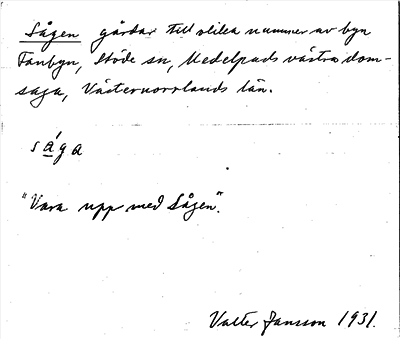 Sågen gårdar till olika nummer av byn
Fanbyn, Stöde sn, Medelpads västra dom-
saga, Västernorrlands län.
sága
"Vara upp med Sågen".
Valter Jansson 1931.